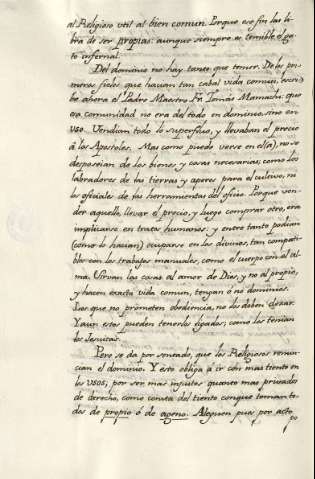 al Religioso vtil al bien comun. Porque eso fin las li-
bra de ser propias: aunque siempre es temible el ga-
to infernal.
Del dominio no hay tanto que temer. De los pri-
meros fieles que hauian tan cabal vida comun, escri-
be ahora el Padre Maestro Fr. Tomás Mamachi, que
esa comunidad no era del todo en dominio, sino en
vso. Vendian todo lo superfluo, y llevaban el precio
à los Apostoles. Mas (como puede verse en ella), no se
desposeian de los bienes y cosas necesarias; como los
labradores de las tierras y aperos para el cultivo, ni
los oficiales de las herramientas del oficio. Porque ven-
der aquello, llevar el precio, y luego comprar otro, era
implicarse en tratos humanos: y entre tanto podian
(como lo hacian) ocuparse en los divinos, tan compati-
bles con los trabajos manuales, como el cuerpo con el al-
ma. Sirvan las cosas al amor de Dios, y no al propio,
y hacen exacta vida comun, tengan ó no dominios.
Los que no prometen obediencia, no los deben dexar.
Y aun estos pueden tenerlos ligados; como los tenian
los Jesuitas.
Pero se da por sentado, que los Religiosos renun-
cian el dominio. Y esto obliga à ir con mas tiento en
los vsos; por ser mas injustos quanto mas privados
de derecho, como consta del tiento conque toman to-
dos de propio ó de ageno. Alguien pues por acto